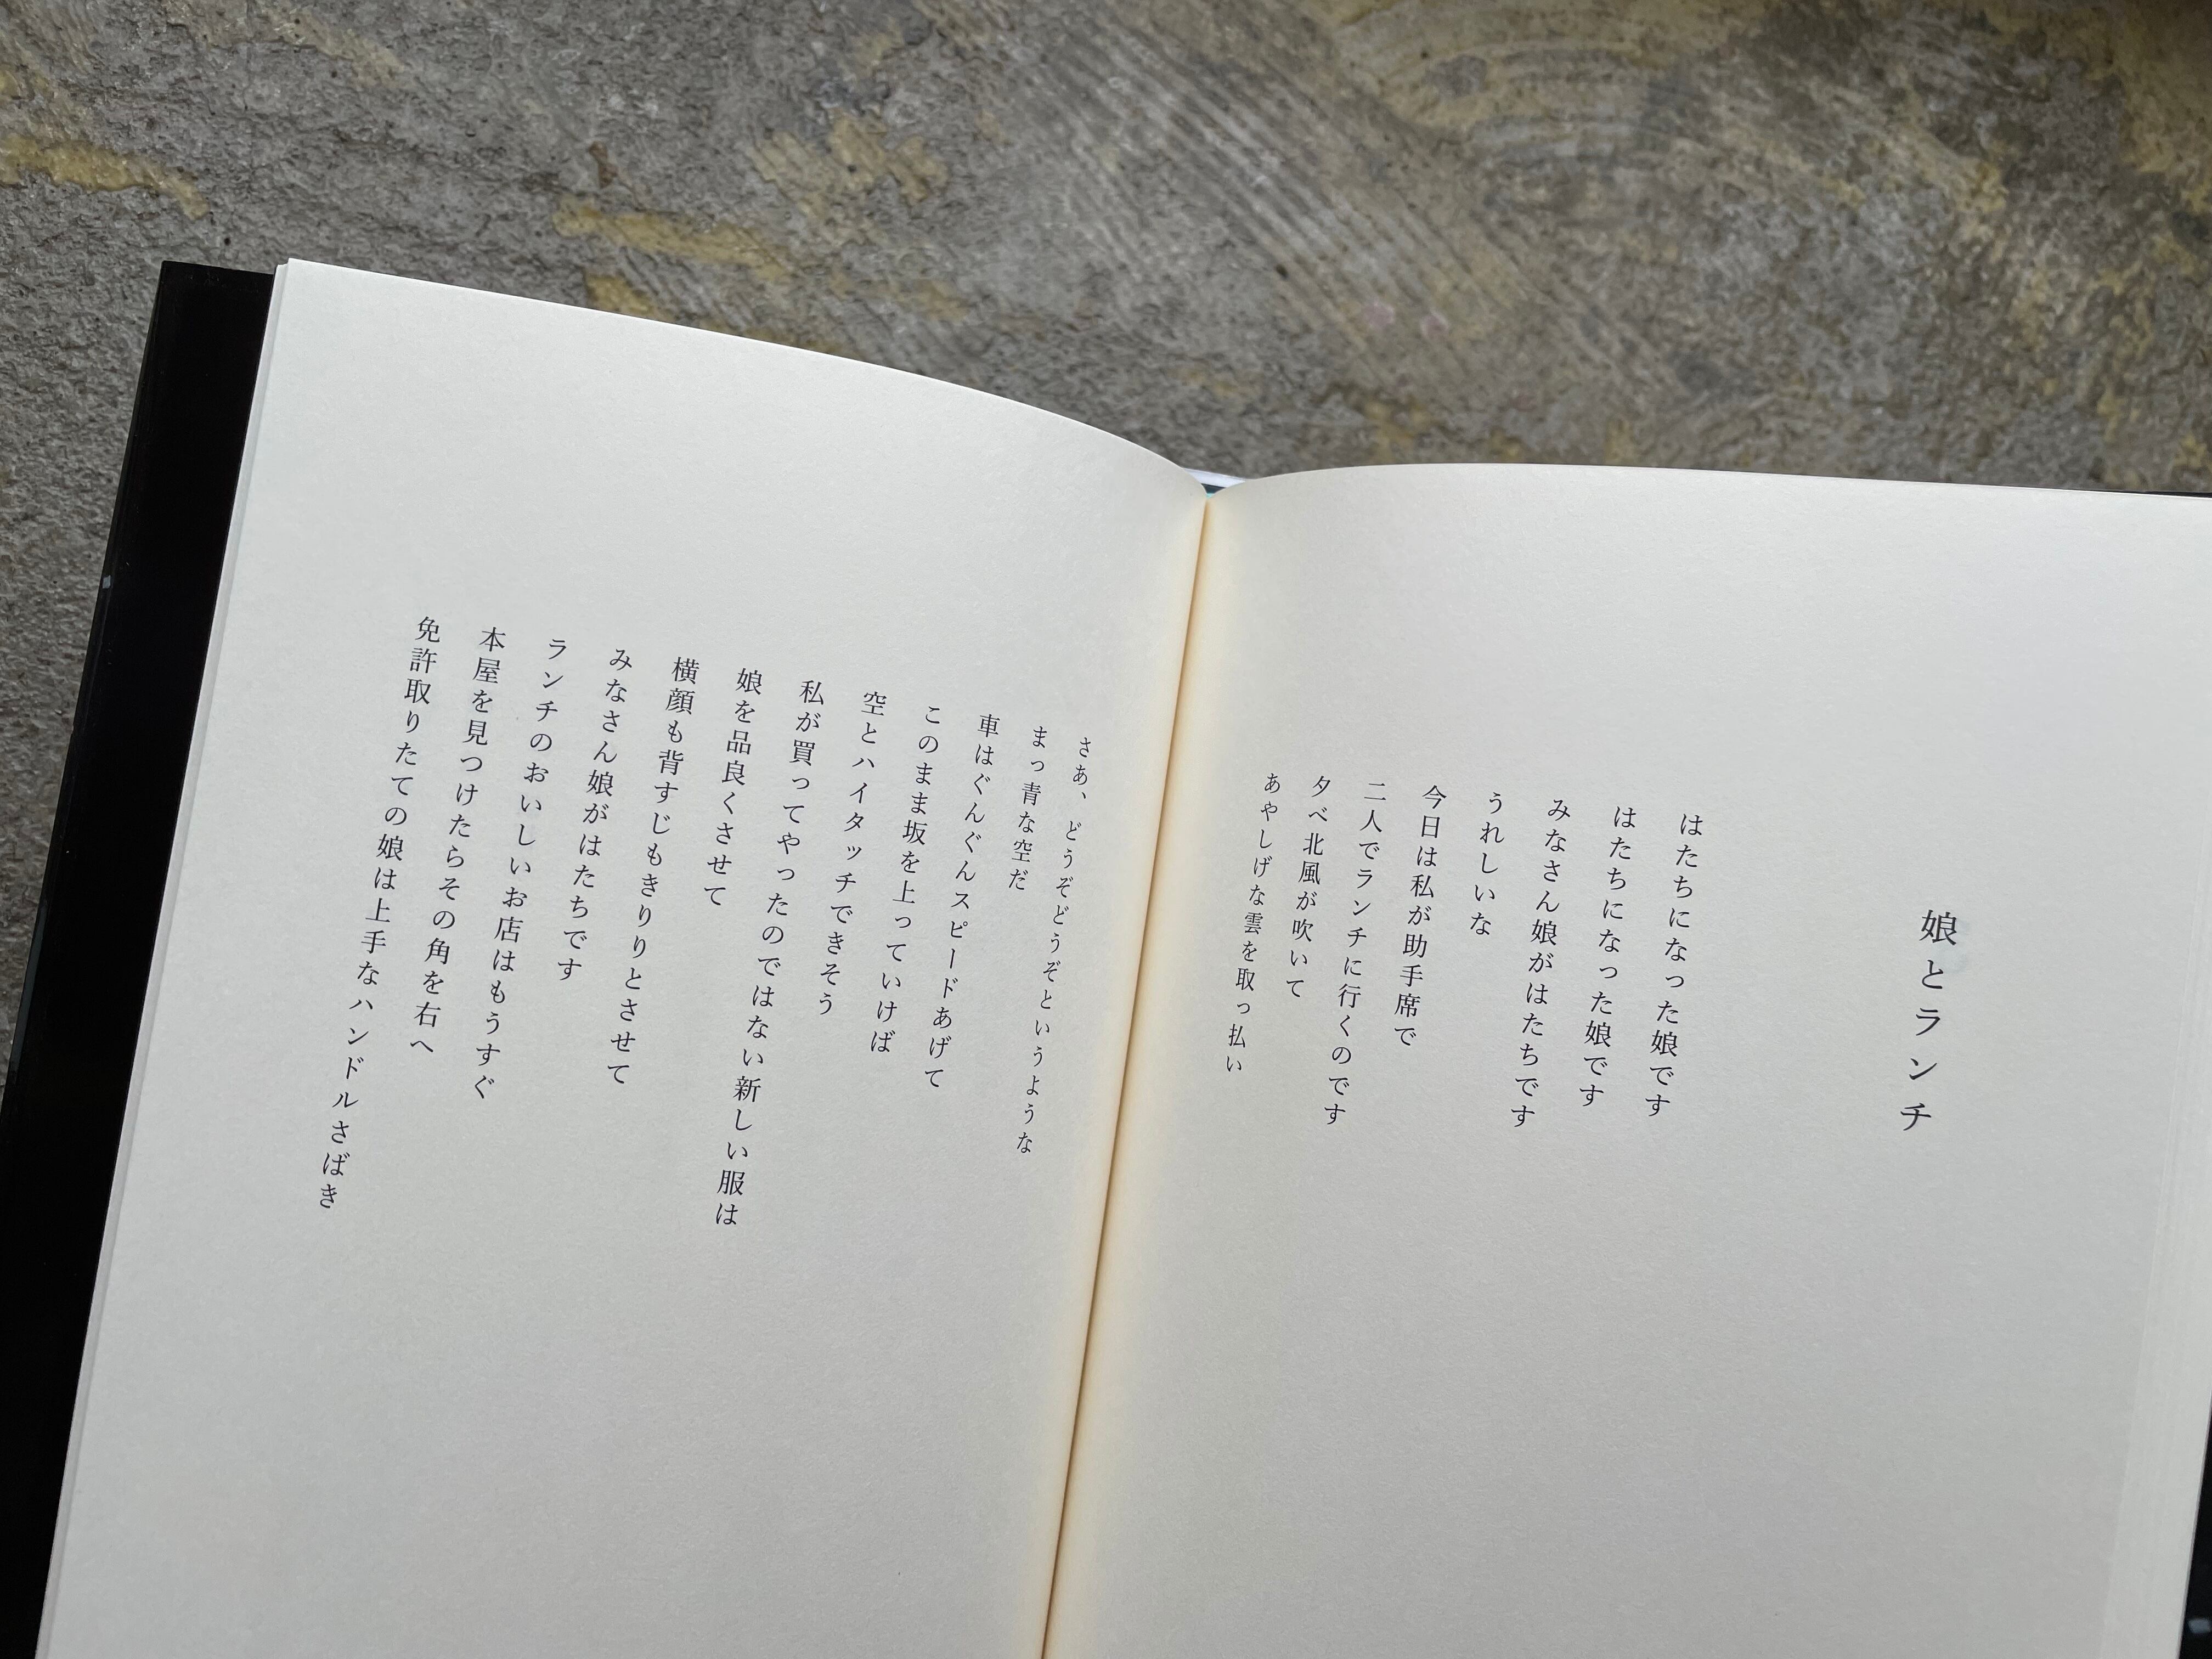 娘とランチ
はたちになった娘です
はたちになった娘です
みなさん娘がはたちです
うれしいな
今日は私が助手席で
二人でランチに行くのです
夕べ北風が吹いて
あやしげな雲を取っ払い
さあ、どうぞどうぞというような
まっ青な空だ
車はぐんぐんスピードあげて
このまま坂を上っていけば
空とハイタッチできそう
私が買ってやったのではない新しい服は
娘を品良くさせて
横顔も背すじもきりりとさせて
みなさん娘がはたちです
ランチのおいしいお店はもうすぐ
本屋を見つけたらその角を右へ
免許取りたての娘は上手なハンドルさばき